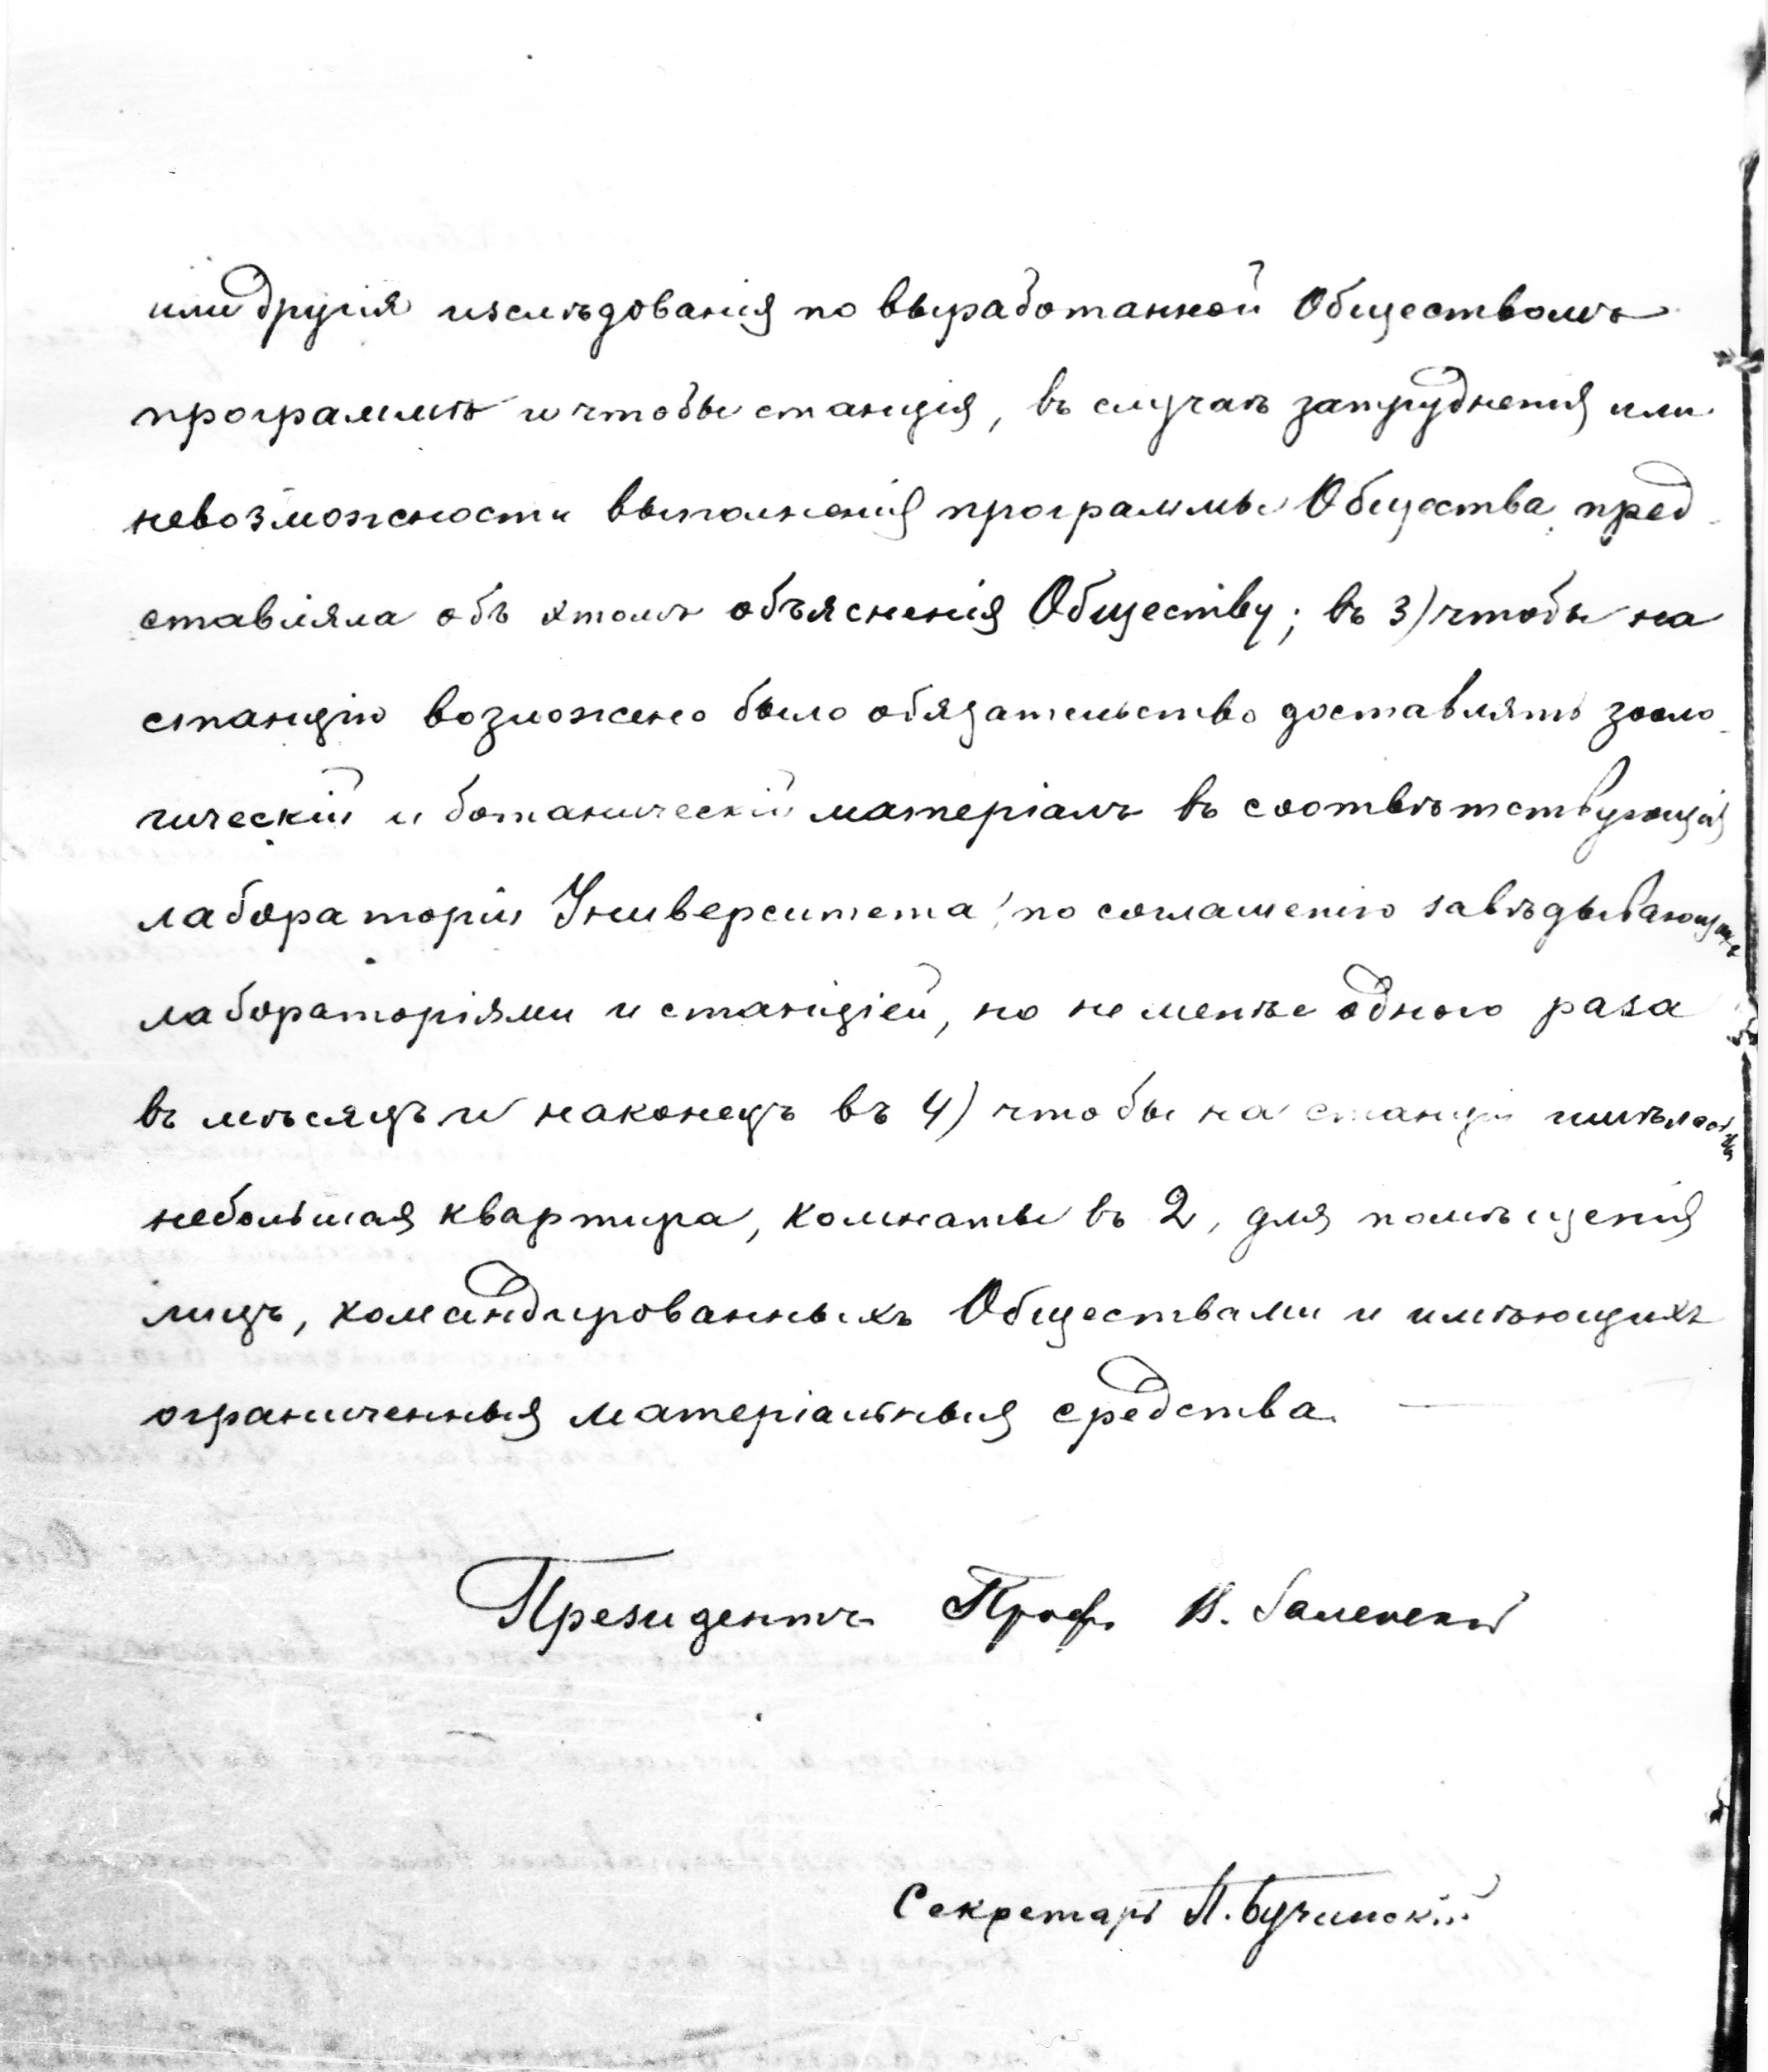 или другія изслѣдованія по выработанной Обществомъ
программѣ и чтобы станція, въ случаѣ затрудненія или
невозможности выполненія программы Общества, пред-
ставляла объ этомъ объясненія Обществу; въ 3) чтобы на
станцію возможено было обязательство доставлять зооло-
гическій и ботаническій матеріалъ въ соотвѣтствующія
лабораторіи Университета, по соглашенію завѣдывающихъ
лабораторіями и станціей, но не менѣе одного раза
въ мѣсяцъ и наконецъ въ 4) чтобы на станціи имѣлась
небольшая квартира, комнаты въ 2, для помѣщенія
лицъ, командированныхъ Обществами и имѣющихъ
ограниченныя матеріальныя средства.
Президентъ Проф. В. Заленскій
Секретарь П. Бучинскій